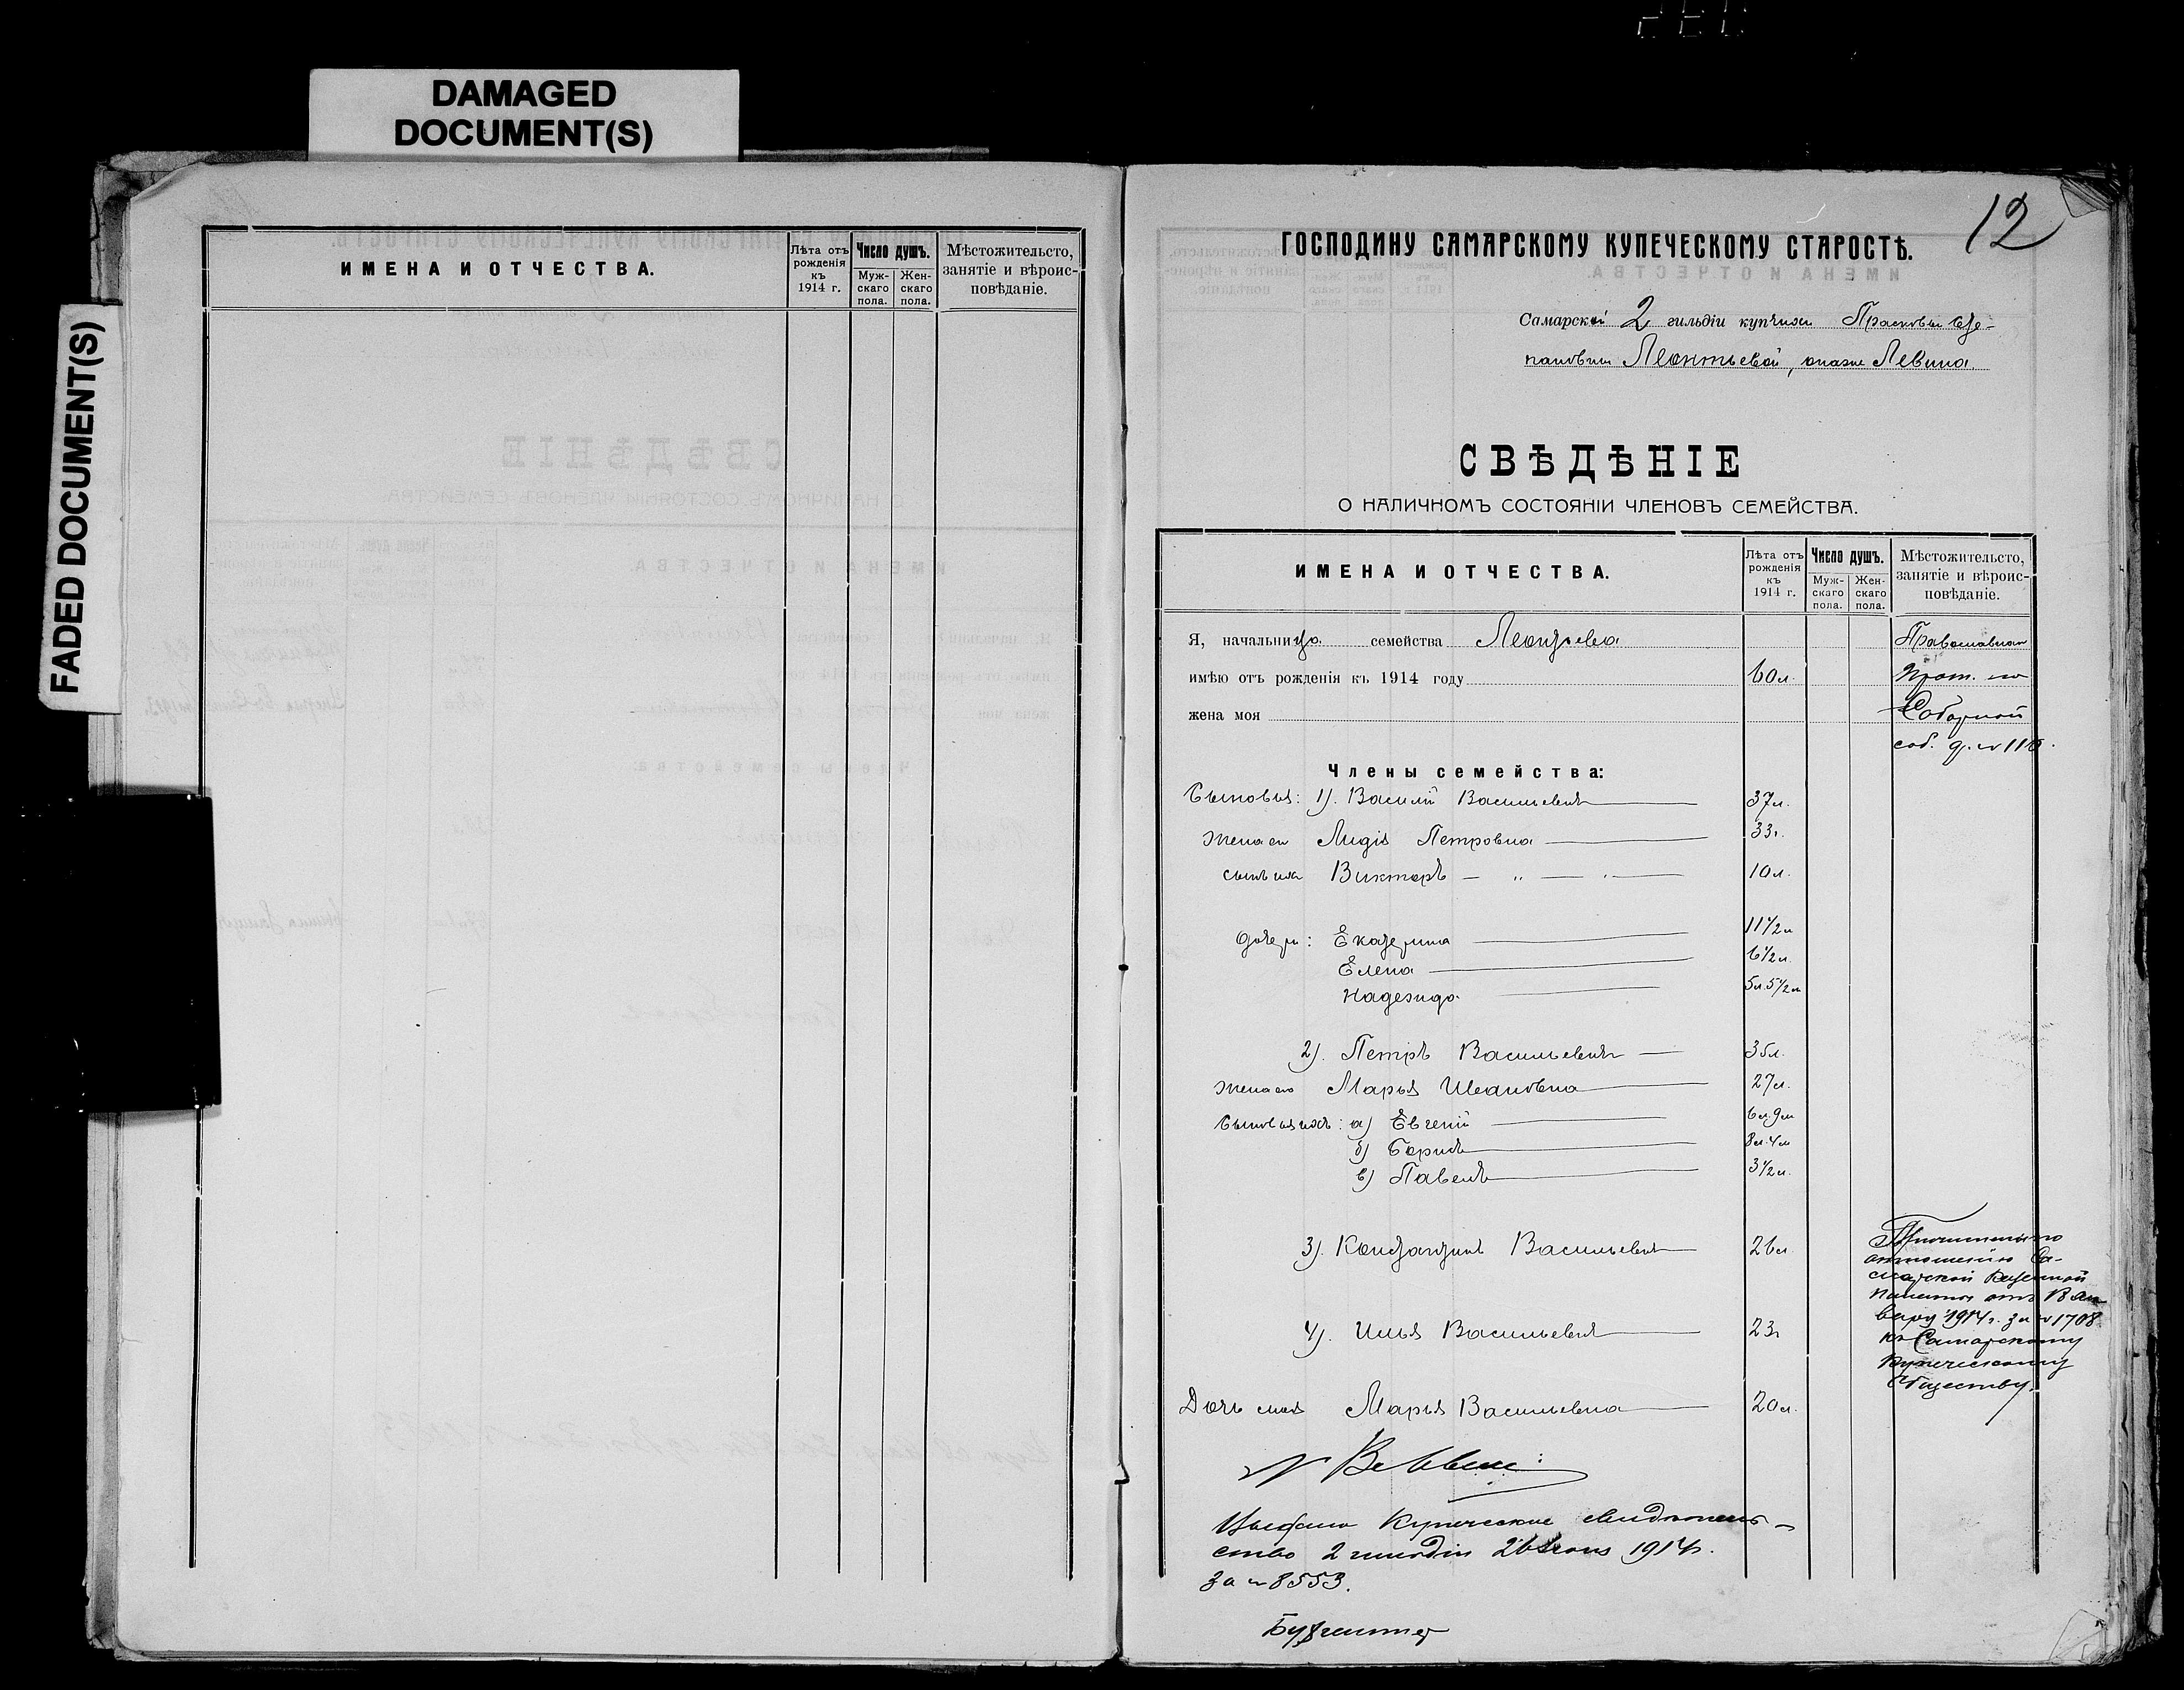 DAMAGED
DOCUMENT(S)
FADED DOCUMENT(S)
ИМЕНА И ОТЧЕСТВА.
Лѣта отъ рожденія къ 1914 г.
Число душъ.
Муж-скаго пола.
Жен-скаго пола.
Мѣстожительсто, занятіе и вѣроис-повѣданіе.
12
ГОСПОДИНУ САМАРСКОМУ КУПЕЧЕСКОМУ СТАРОСТѢ.
Самарской 2 гильдіи купчихи Прасковьи Сте-
пановны Леонтьевой, онаже Левина.
СВѢДѢНІЕ
О НАЛИЧНОМЪ СОСТОЯНІИ ЧЛЕНОВЪ СЕМЕЙСТВА.
ИМЕНА И ОТЧЕСТВА.
Лѣта отъ рожденія къ 1914 г.
Число душъ.
Муж-скаго пола.
Жен-скаго пола.
Мѣстожительсто, занятіе и вѣроис-повѣданіе.
Я, начальница семейства Леонтьева Православная
имѣю отъ рожденія къ 1914 году 60 л. Прож. по
жена моя Соборной
соб. д. № 116.
Члены семейства:
Сыновья: 1). Василій Васильевичъ 37 л.
Жена его Лидія Петровна 33 г.
сынъ ихъ Викторъ — „ — 10 л.
дочери: Екатерина 11 1/2 л
Елена 6 1/2 л.
Надежда
2). Петръ Васильевичъ 35 л.
Жена его Марья Ивановна 27 л.
Сыновья ихъ: а) Евгеній 6 л. 9 м
б) Борисъ 8 л. 4 м
в) Павелъ 3 1/2 л.
3). Константинъ Васильевичъ 26 л.
4). Илья Васильевичъ 23 г
Причислены по
отношенію Са-
марской Казенной
Палаты отъ 13 Ян-
варя 1914 г. за № 1708
къ Самарскому
Купеческому
Обществу.
Дочь моя Марья Васильевна 20 л.
Выдано Купеческое свидѣтель-
ство 2 гильдіи 1914 г.
за № 8553.
Бухгалтер